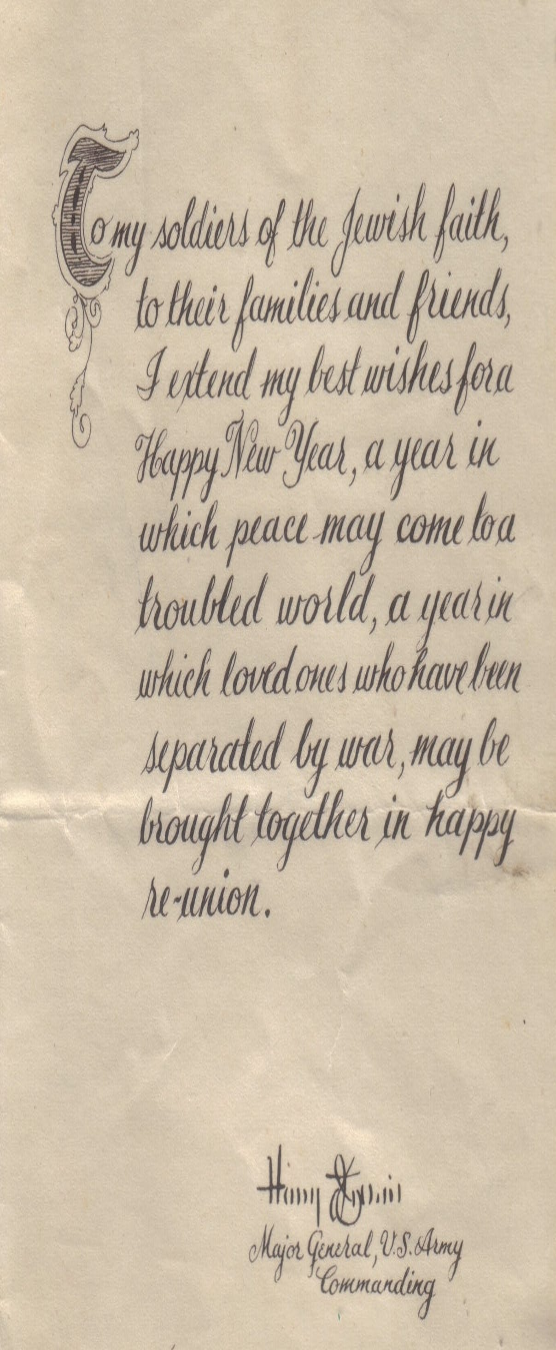 To my soldiers of the Jewish faith,
to their families and friends,
I extend my best wishes for a
Happy New Year, a year in
which peace may come to a
troubled world, a year in
which loved ones who have been
separated by war, may be
brought together in happy
re-union.
Major General, U.S. Army
Commanding